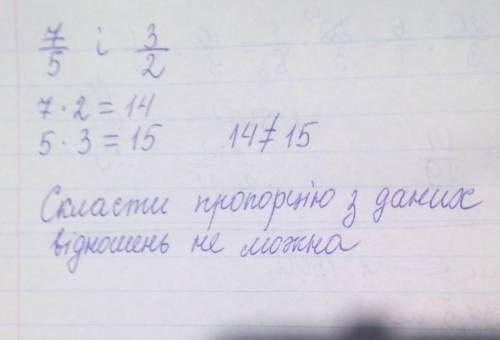 7/5 і 3/2
7 · 2 = 14
5 · 3 = 15 14 ≠ 15
Скласти пропорцію з даних
відношень не можна